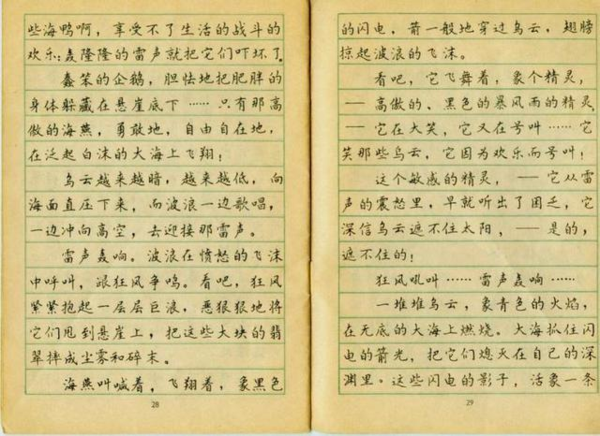 些海鸭啊，享受不了生活的战斗的
欢乐：轰隆隆的雷声就把它们吓坏了。
蠢笨的企鹅，胆怯地把肥胖的
身体躲藏在悬崖底下……只有那高
傲的海燕，勇敢地，自由自在地，
在泛起白沫的大海上飞翔！
乌云越来越暗，越来越低，向
海面直压下来，而波浪一边歌唱，
一边冲向高空，去迎接那雷声。
雷声轰响。波浪在愤怒的飞沫
中呼叫，跟狂风争鸣。看吧，狂风
紧紧抱起一层层巨浪，恶狠狠地将
它们甩到悬崖上，把这些大块的翡
翠摔成尘雾和碎末。
海燕叫喊着，飞翔着，象黑色
28
的闪电，箭一般地穿过乌云，翅膀
掠起波浪的飞沫。
看吧，它飞舞着，象个精灵，
——高傲的、黑色的暴风雨的精灵，
——它在大笑，它又在号叫……它
笑那些乌云，它因为欢乐而号叫！
这个敏感的精灵，——它从雷
声的震怒里，早就听出了困乏，它
深信乌云遮不住太阳，——是的，
遮不住的！
狂风吼叫……雷声轰响……
一堆堆乌云，象青色的火焰，
在无底的大海上燃烧。大海抓住闪
电的箭光，把它们熄灭在自己的深
渊里。这些闪电的影子，活象一条
29